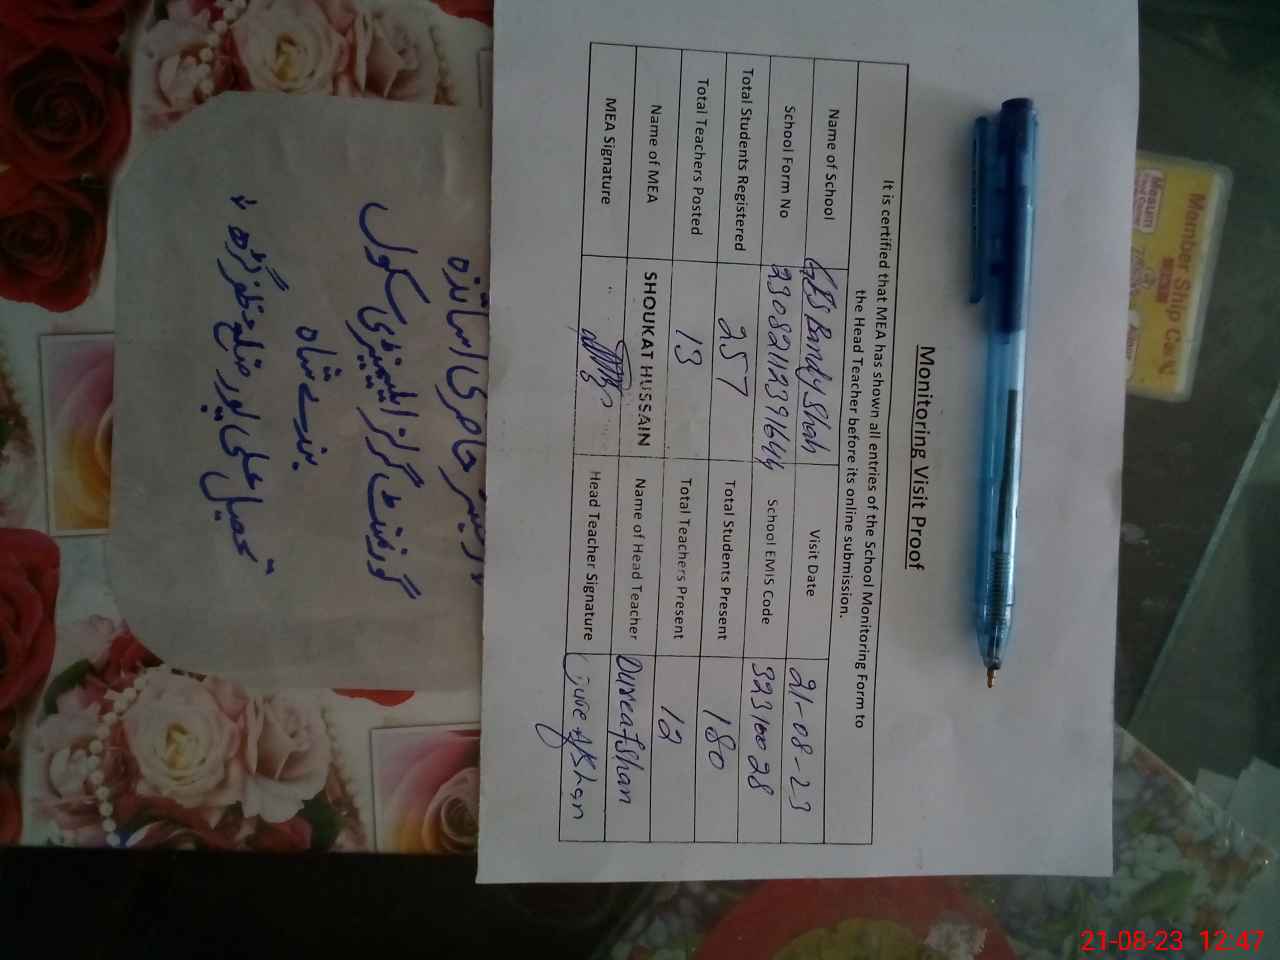 Monitoring Visit Proof
It is certified that MEA has shown all entries of the School Monitoring Form to
the Head Teacher before its online submission.
Name of School GES Bandy Shah Visit Date 21-08-23
School Form No 23082112391644 School EMIS Code 32310028
Total Students Registered 257 Total Students Present 180
Total Teachers Posted 13 Total Teachers Present 12
Name of MEA SHOUKAT HUSSAIN Name of Head Teacher Dureafshan
MEA Signature Head Teacher Signature Afshan
رجسٹر حاضری اساتذہ
گورنمنٹ گرلز ایلیمنٹری سکول
بندے شاہ
تحصیل علی پور ضلع مظفرگڑھ
Member Ship Card
Masum
21-08-23 12:47